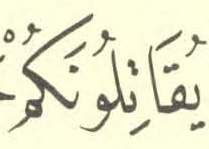 يُقَاتِلُونَكُمْ